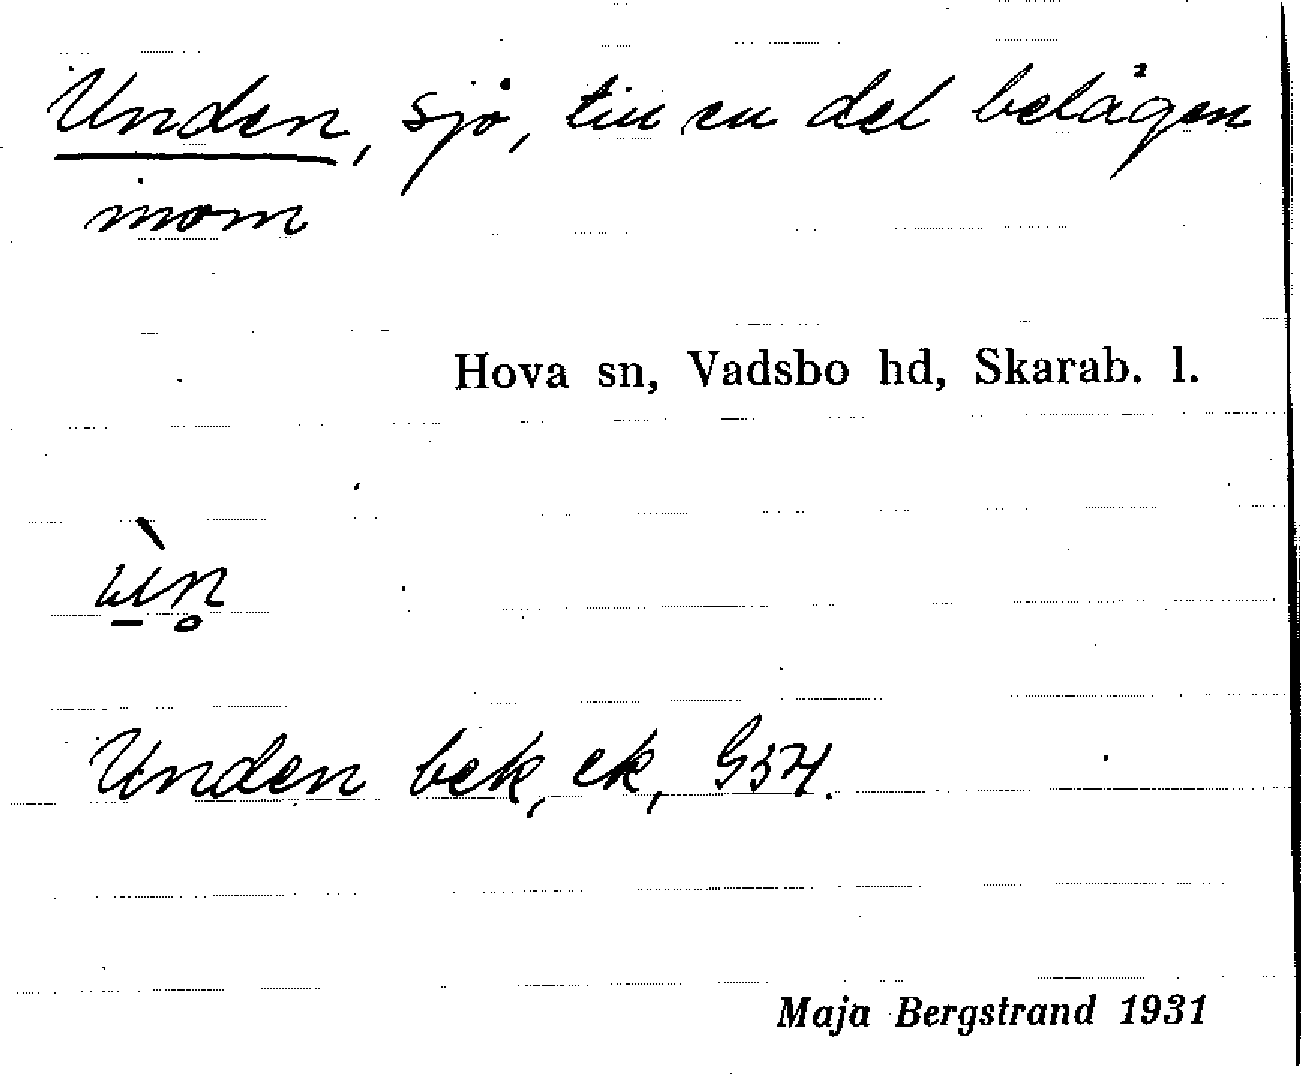 Unden, sjö, till en del belägen
inom
Hova sn, Vadsbo hd, Skarab. l.
Unden bek, ek, G54.
Maja Bergstrand 1931